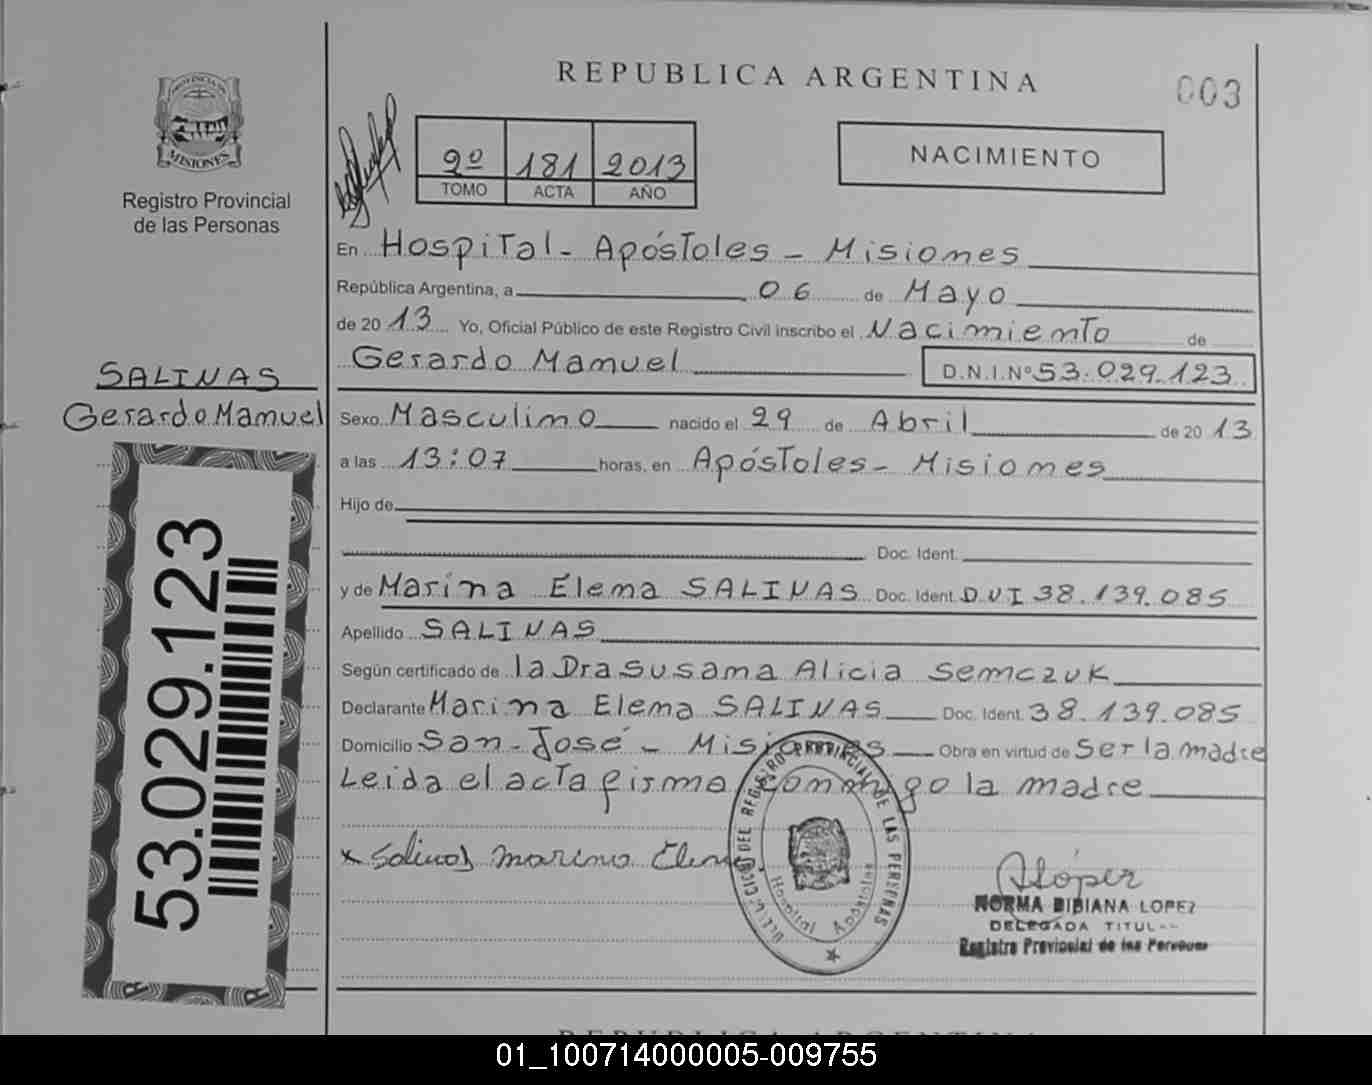 REPUBLICA ARGENTINA
003
PROVINCIA DE
MISIONES
Registro Provincial
de las Personas
2º 181 2013
TOMO ACTA AÑO
NACIMIENTO
En Hospital - Apóstoles - Misiones
República Argentina, a 06 de Mayo
de 2013 Yo, Oficial Público de este Registro Civil inscribo el Nacimiento de
Gerardo Manuel D.N.I.Nº 53.029.123
SALINAS
Gerardo Manuel
Sexo Masculino nacido el 29 de Abril de 2013
a las 13:07 horas, en Apóstoles - Misiones
Hijo de
Doc. Ident.
y de Marina Elena SALINAS Doc. Ident. DNI 38.139.085
Apellido SALINAS
Según certificado de la Dra Susana Alicia Semczuk
Declarante Marina Elena SALINAS Doc. Ident. 38.139.085
Domicilio San José - Misiones Obra en virtud de Ser la madre
Leida el acta firma conmigo la madre
x Salinas Marina Elena
53.029.123
DEL REGISTRO PROVINCIAL DE LAS PERSONAS
Hospital Apóstoles
ALópez
NORMA BIBIANA LOPEZ
DELEGADA TITUL
Registro Provincial de las Personas
REPUBLICA ARGENTINA
01_100714000005-009755